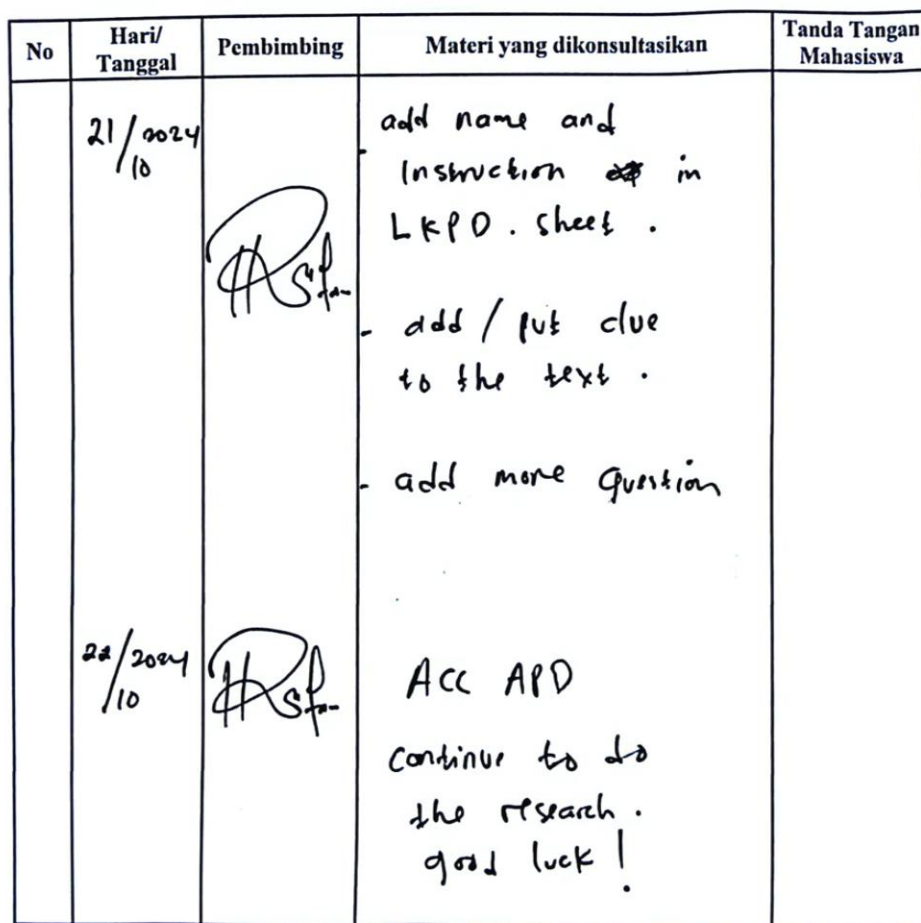 No
Hari/
Tanggal
Pembimbing
Materi yang dikonsultasikan
Tanda Tangan
Mahasiswa
21/10 2024
- add name and
Instruction in
LKPD. sheet.
- add / put clue
to the text.
- add more Question
22/10 2024
ACC APD
continue to do
the research.
good luck!